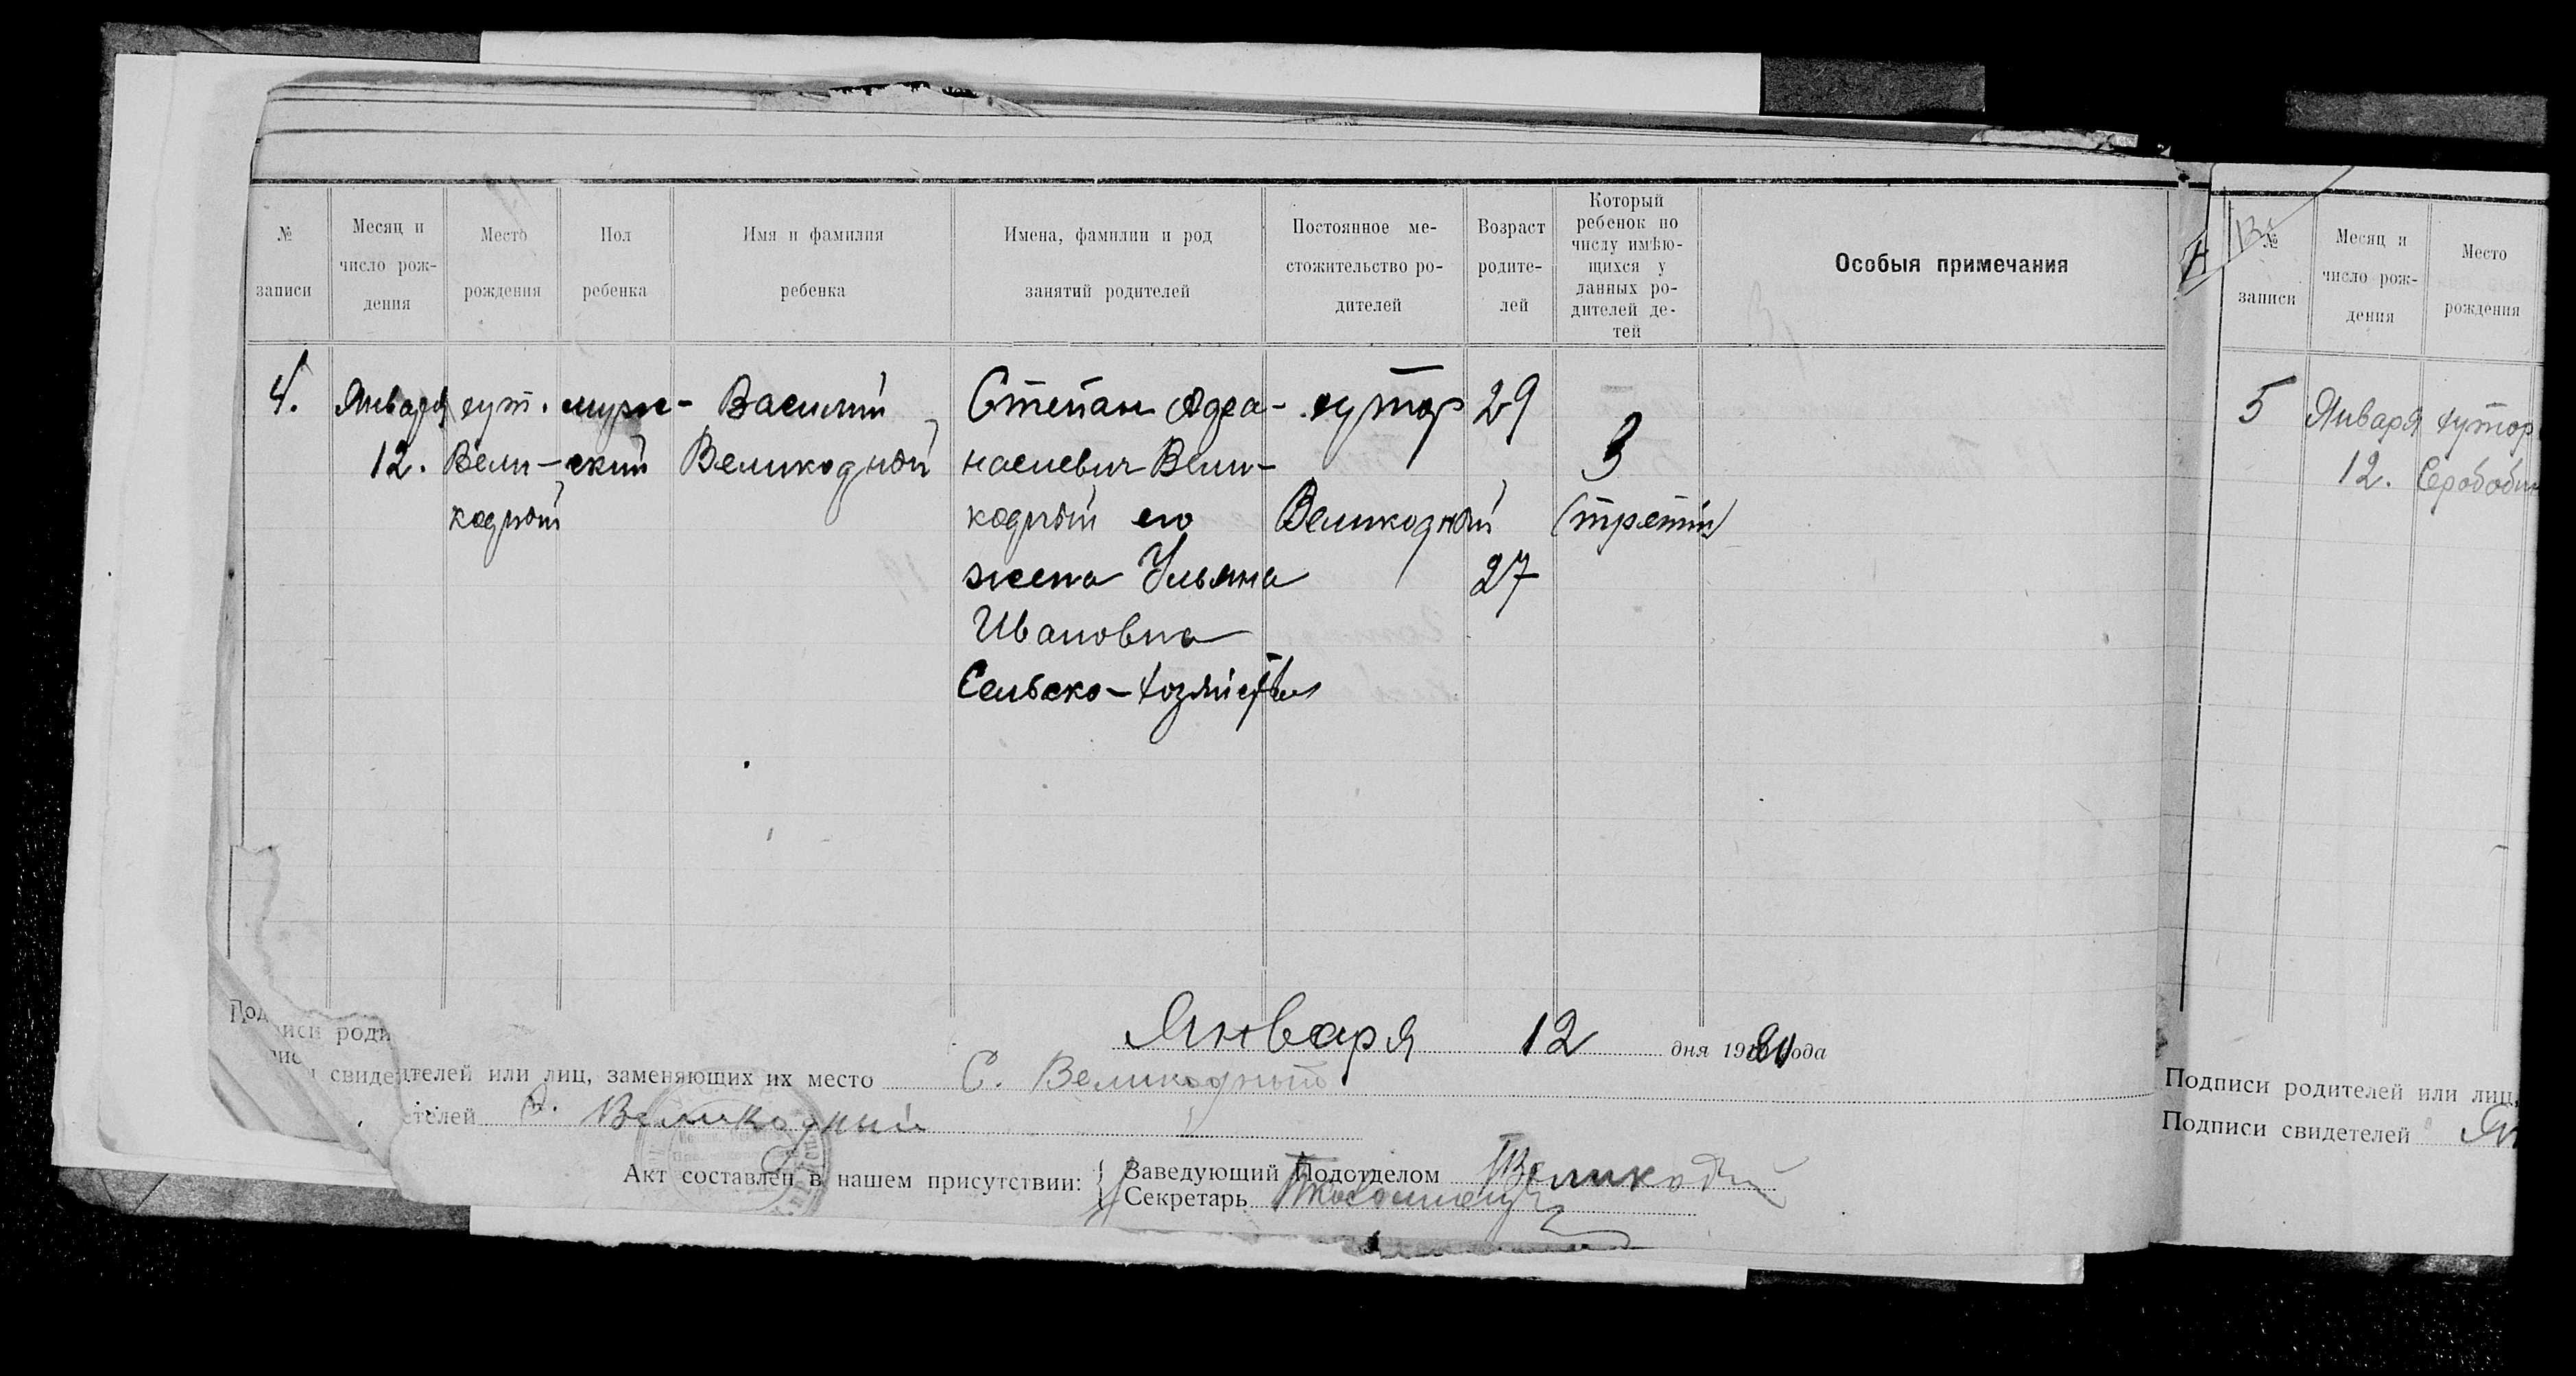 № записи
Месяц и число рождения
Место рождения
Пол ребенка
Имя и фамилия ребенка
Имена, фамилии и род занятий родителей
Постоянное местожительство родителей
Возраст родителей
Который ребенок по числу имѣющихся у данных родителей детей
Особыя примечания
4.
Января
12.
хут.
Вели-
кодный
муж-
ский
Василий
Великодный
Степан Афа-
насиевич Вели-
кодный его
жена Ульяна
Ивановна
Сельско-хозяйств
хутор
Великодный
29
27
3
(третий)
Января 12 дня 19 года
свидетелей или лиц, заменяющих их место С. Великодный
Великодный
Акт составлен в нашем присутствии:
Заведующий Подотделом Великодн
Секретарь
13
№ записи
Месяц и число рождения
Место рождения
5
Января
12.
хутор
Подписи родителей или лиц,
Подписи свидетелей